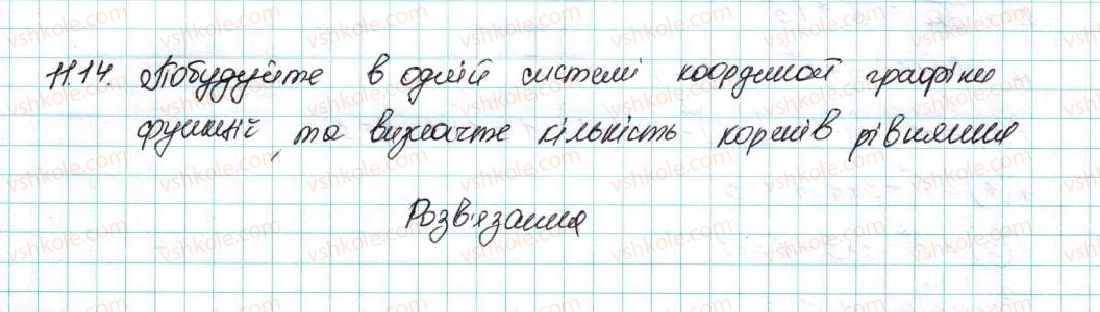 11.14. Побудуйте в одній системі координат графіки
функцій, та визначте кількість коренів рівняння
Розв'язання